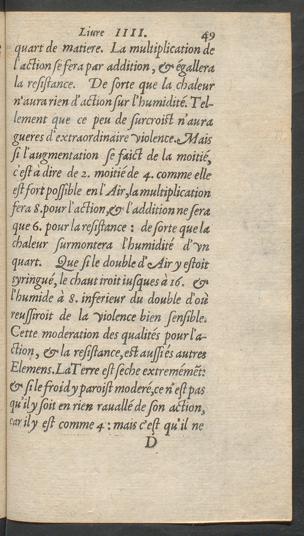 Liure IIII. 49
quart de matiere. La multiplication de
l'action se fera par addition, & égallera
la resistance. De sorte que la chaleur
n'aura rien d'action sur l'humidité. Tel-
lement que ce peu de surcroist n'aura
gueres d'extraordinaire violence. Mais
si l'augmentation se faict de la moitié,
c'est à dire de 2. moitié de 4. comme elle
est fort possible en l'Air, la multiplication
fera 8. pour l'action, & l'addition ne sera
que 6. pour la resistance : de sorte que la
chaleur surmontera l'humidité d'vn
quart. Que si le double d'Air y estoit
syringué, le chaut iroit iusques à 16. &
l'humide à 8. inferieur du double d'où
reussiroit de la violence bien sensible.
Cette moderation des qualités pour l'a-
ction, & la resistance, est aussi és autres
Elemens. La Terre est seche extrememẽt:
& si le froid y paroist moderé, ce n'est pas
qu'il y soit en rien rauallé de son action,
car il y est comme 4 : mais c'est qu'il ne
D